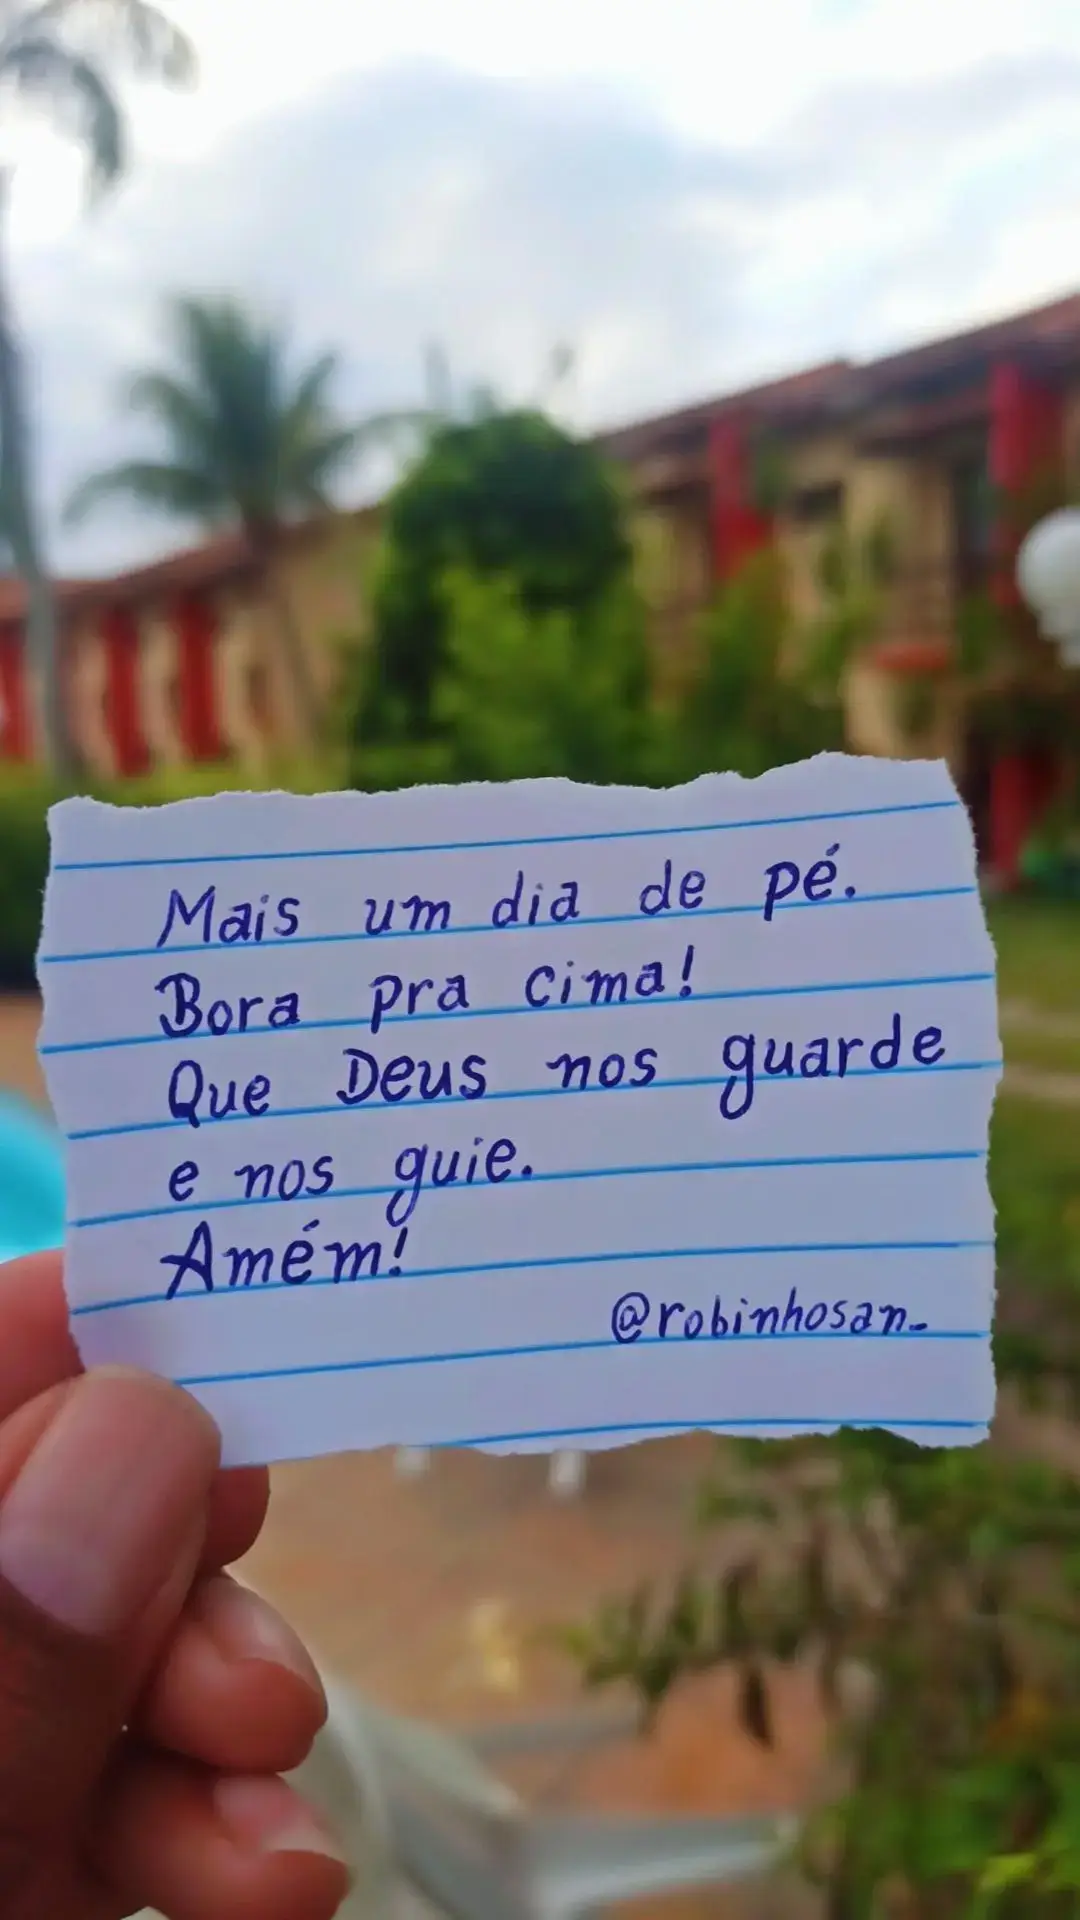 Mais um dia de pé.
Bora pra cima!
Que Deus nos guarde
e nos guie.
Amém!
@robinhosan_